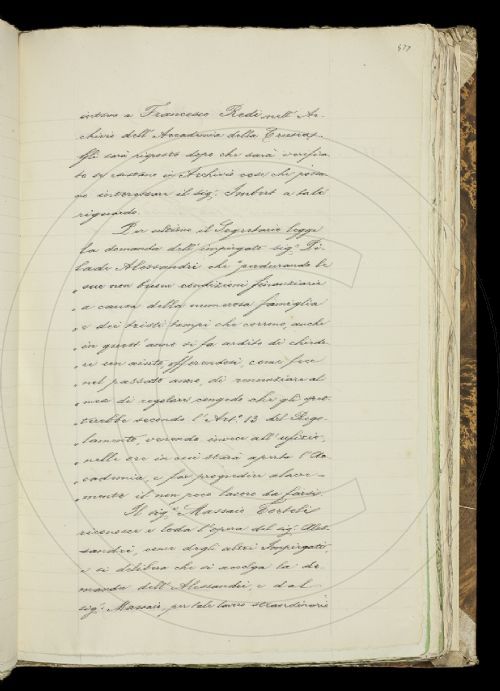 477
intorno a Francesco Redi nell' Ar-
chivio dell' Accademia della Crusca.
Gli sarà risposto dopo che sarà verifica
to se esistono in Archivio cose che possa
no interessare il sig. Imbert a tale
riguardo.
Per ultimo il Segretario legge
la domanda dell' impiegato sig. Pi-
lade Alessandri che "perdurando le
" sue non buone condizioni finanziarie
" a causa della numerosa famiglia
" e dei tristi tempi che corrono, anche
" in quest' anno si fa ardito di chiede-
" re un aiuto, offerendosi, come fece
" nel passato anno, di rinunziare al
" mese di regolare congedo che gli spet-
" terebbe secondo l'Art.º 13 del Rego-
" lamento, venendo invece all' ufizio,
" nelle ore in cui starà aperta l'Ac-
" cademia, e far progredire alacre-
" mente il non poco lavoro da farsi.
Il sig.r Massaio Tortoli
riconosce e loda l'opera del sig. Ales-
sandri, come degli altri Impiegati,
e si delibera che si accolga la do-
manda dell' Alessandri, e dal
sig. Massaio, per tale lavoro straordinario